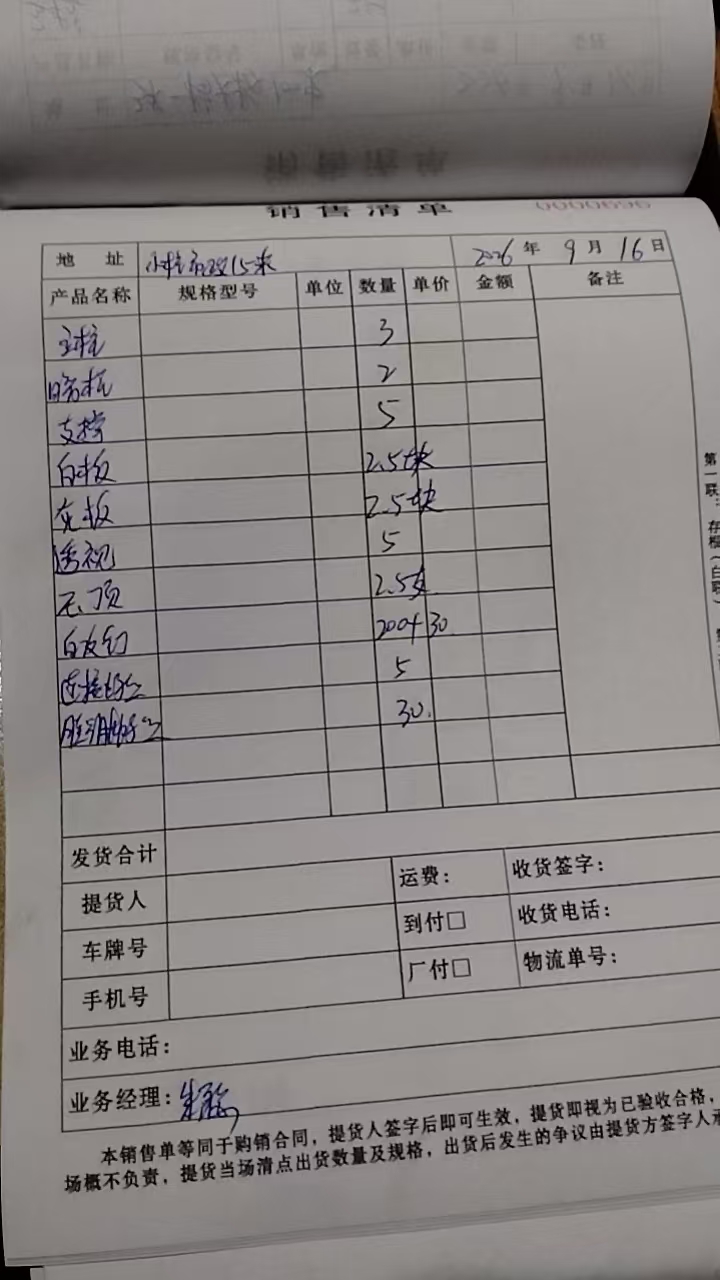 销售清单 0000696
地 址 小柱市政15米 2026 年 9 月 16 日
产品名称 规格型号 单位 数量 单价 金额 备注
主柱 3
暗柱 2
支撑 5
白板 2.5块
灰板 2.5块
透视 5
压顶 2.5支
自攻钉 200+30
连接
5
30.
发货合计
提货人 运费: 收货签字:
车牌号 到付□ 收货电话:
手机号 厂付□ 物流单号:
业务电话:
业务经理:
本销售单等同于购销合同，提货人签字后即可生效，提货即视为已验收合格，
场概不负责，提货当场清点出货数量及规格，出货后发生的争议由提货方签字人承
第一联：存根（白联）